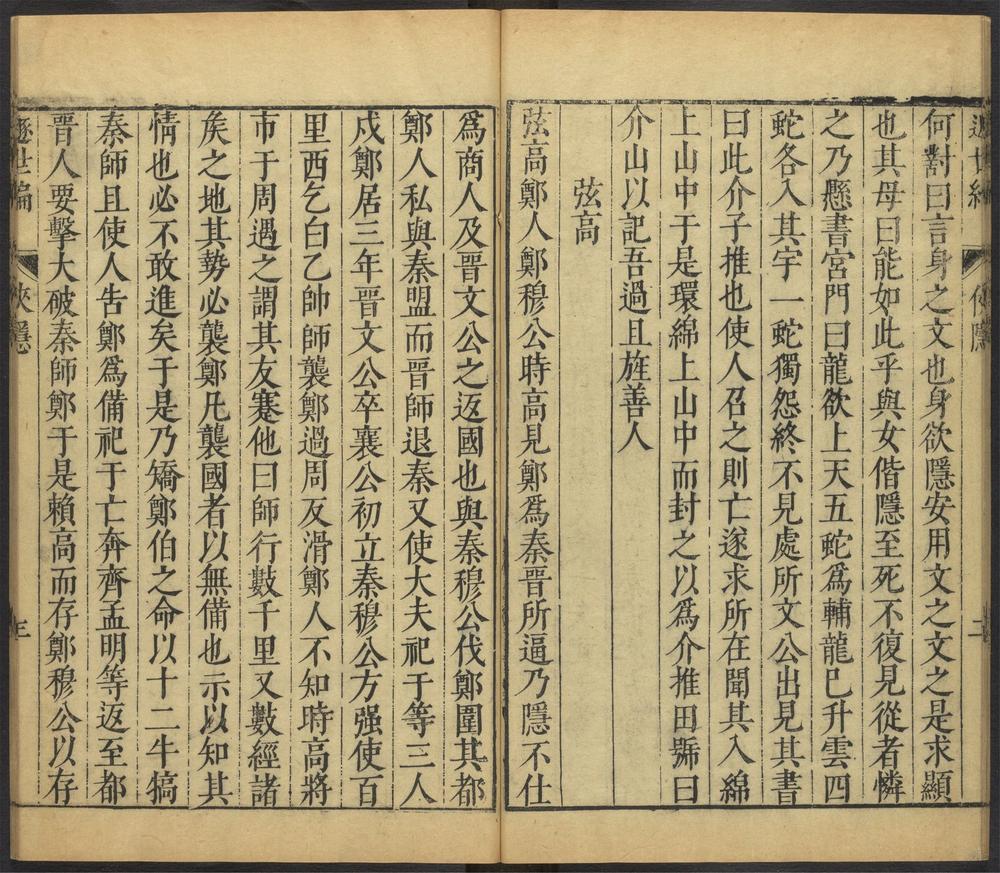 何對曰言身之文也身欲隱安用文之文之是求顯
也其母曰能如此乎與女偕隱至死不復見從者憐
之乃懸書宮門曰龍欲上天五蛇爲輔龍已升雲四
蛇各入其宇一蛇獨怨終不見處所文公出見其書
曰此介子推也使人召之則亡遂求所在聞其入綿
上山中于是環綿上山中而封之以爲介推田號曰
介山以記吾過且旌善人
弦高
弦高鄭人鄭穆公時高見鄭爲秦晉所逼乃隱不仕
爲商人及晉文公之返國也與秦穆公伐鄭圍其都
鄭人私與秦盟而晉師退秦又使大夫祀于等三人
戍鄭居三年晉文公卒襄公初立秦穆公方强使百
里西乞白乙帥師襲鄭過周反滑鄭人不知時高將
市于周遇之謂其友蹇他曰師行數千里又數經諸
矦之地其勢必襲鄭凡襲國者以無備也示以知其
情也必不敢進矣于是乃矯鄭伯之命以十二牛犒
秦師且使人告鄭爲備祀于亡奔齊孟明等返至都
晉人要擊大破秦師鄭于是賴高而存鄭穆公以存